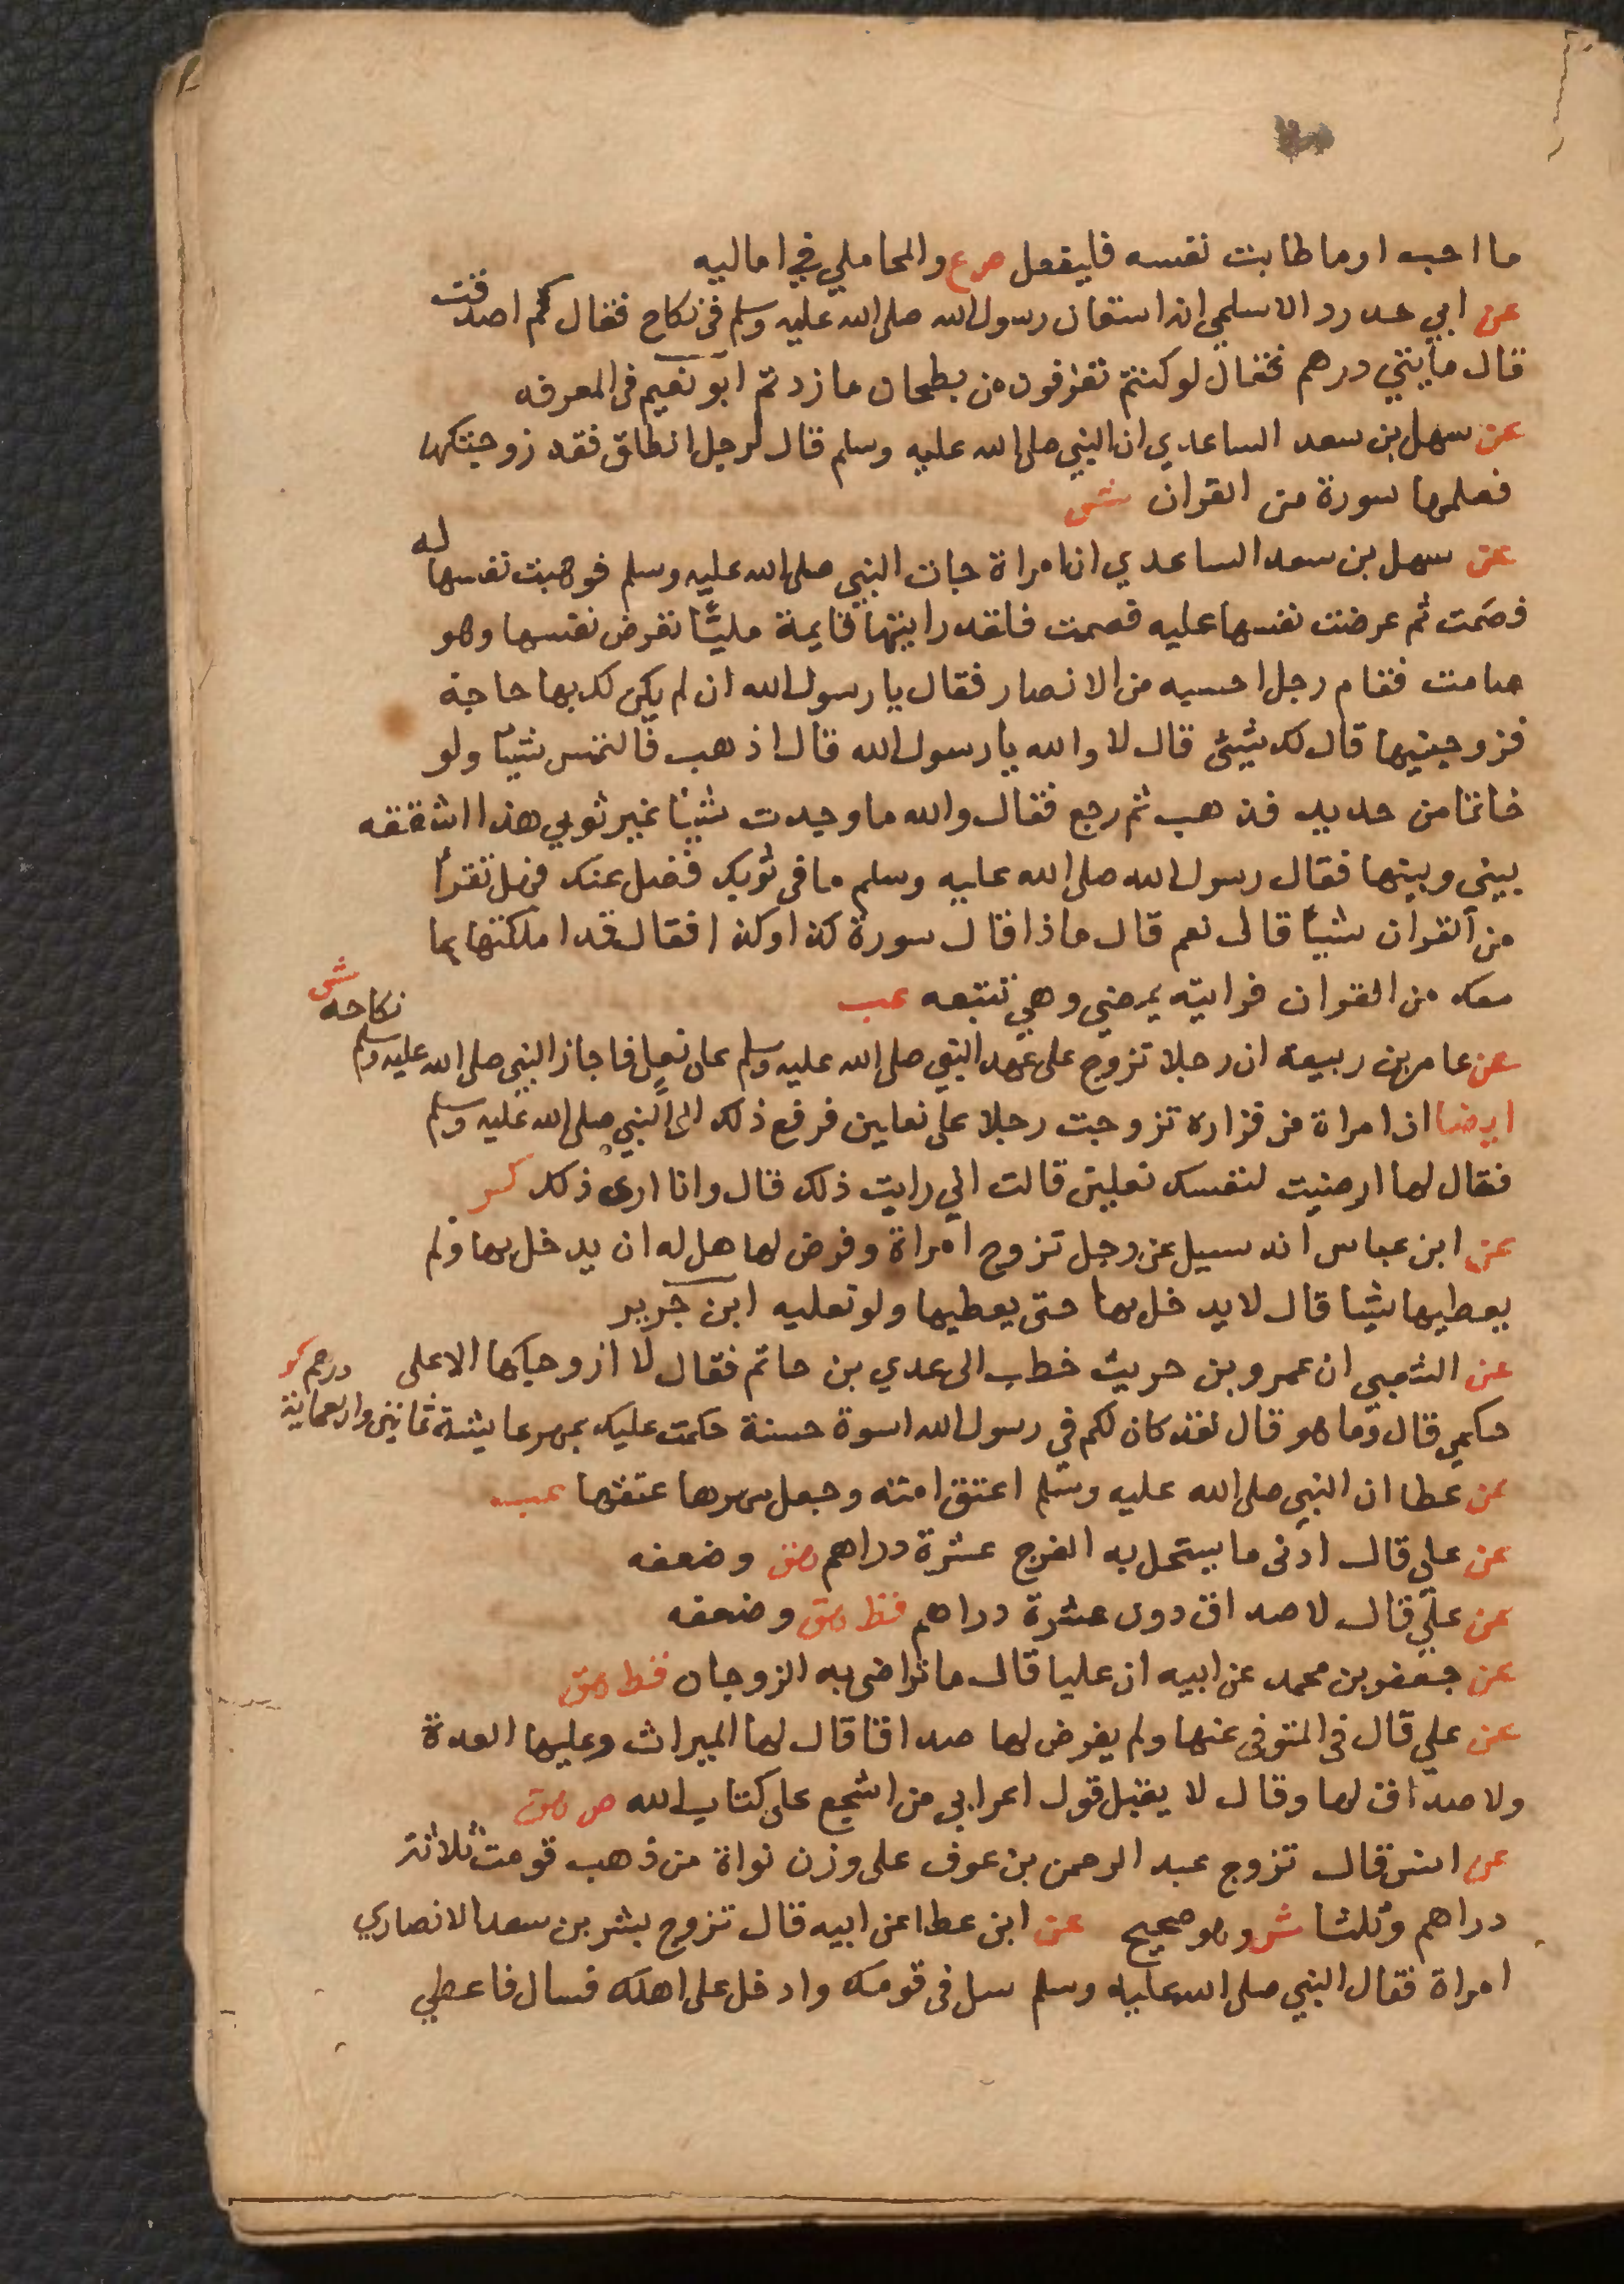 ما احب او ما طابت نفسه فليفعل ص ع والمحاملي في اماليه
عن ابي حدرد الاسلمي انه استعان رسول الله صلى الله عليه وسلم في نكاح فقال كم اصدقت
قال مايتي درهم فقال لو كنتم تغرفون من بطحان ما زدتم ابو نعيم في المعرفه
عن سهل بن سعد الساعدي ان النبي صلى الله عليه وسلم قال لرجل انطلق فقد زوجتكها
فعلمها سورة من القران ش
عن سهل بن سعد الساعدي ان امراة جات النبي صلى الله عليه وسلم فوهبت نفسها له
فصمت ثم عرضت نفسها عليه فصمت فلقد رايتها قايمة مليّا تعرض نفسها وهو
صامت فقام رجل احسبه من الانصار فقال يا رسول الله ان لم يكن لك بها حاجة
فزوجنيها قال لك شيئ قال لا والله يا رسول الله قال اذهب فالتمس شيًا ولو
خاتما من حديد فذهب ثم رجع فقال والله ما وجدت شيًا غير ثوبي هذا اشققه
بيني وبينها فقال رسول الله صلى الله عليه وسلم ما في ثوبك فضل عنك فهل تقرأ
من القران شيًا قال نعم قال ماذا قال سورة كذا وكذا فقال قد املكتها بما
معك من القران فرايته يمضي وهي تتبعه عب
عن عامر بن ربيعة ان رجلا تزوج على عهد النبي صلى الله عليه وسلم على نعل فاجاز النبي صلى الله عليه وسلم نكاحه ش
ايضا ان امراة من فزاره تزوجت رجلا على نعلين فرفع ذلك الى النبي صلى الله عليه وسلم
فقال لها ارضيت لنفسك نعلين قالت اني رايت ذلك قال وانا ارى ذلك كر
عن ابن عباس انه سيل عن رجل تزوج امراة وفرض لها هل له ان يدخل بها ولم
يعطيها شيا قال لا يدخل بها حتى يعطيها ولو نعليه ابن جرير
عن الشعبي ان عمرو بن حريث خطب الى عدي بن حاتم فقال لا ازوجكها الا على
حكمي قال وما هو قال لقد كان لكم في رسول الله اسوة حسنة حكمت عليك بمهر عايشة ثمانين واربعماية درهم كر
عن عطا ان النبي صلى الله عليه وسلم اعتق امته وجعل مهرها عتقها عب
عن علي قال ادنى ما يستحل به الفرج عشرة دراهم هق وضعفه
عن علي قال لا صداق دون عشرة دراهم قط هق وضعفه
عن جعفر بن محمد عن ابيه ان عليا قال ما تراضى به الزوجان قط هق
عن علي قال في المتوفى عنها ولم يفرض لها صداقا قال لها الميراث وعليها العدة
ولا صداق لها وقال لا يقبل قول اعرابي من اشجع على كتاب الله ص هق
عن انس قال تزوج عبد الرحمن بن عوف على وزن نواة من ذهب قومت ثلاثة
دراهم وثلثا ش وهو صحيح عن ابن عطا عن ابيه قال تزوج بشر بن سعد الانصاري
امراة فقال النبي صلى الله عليه وسلم سل في قومك وادخل على اهلك فسال فاعطي